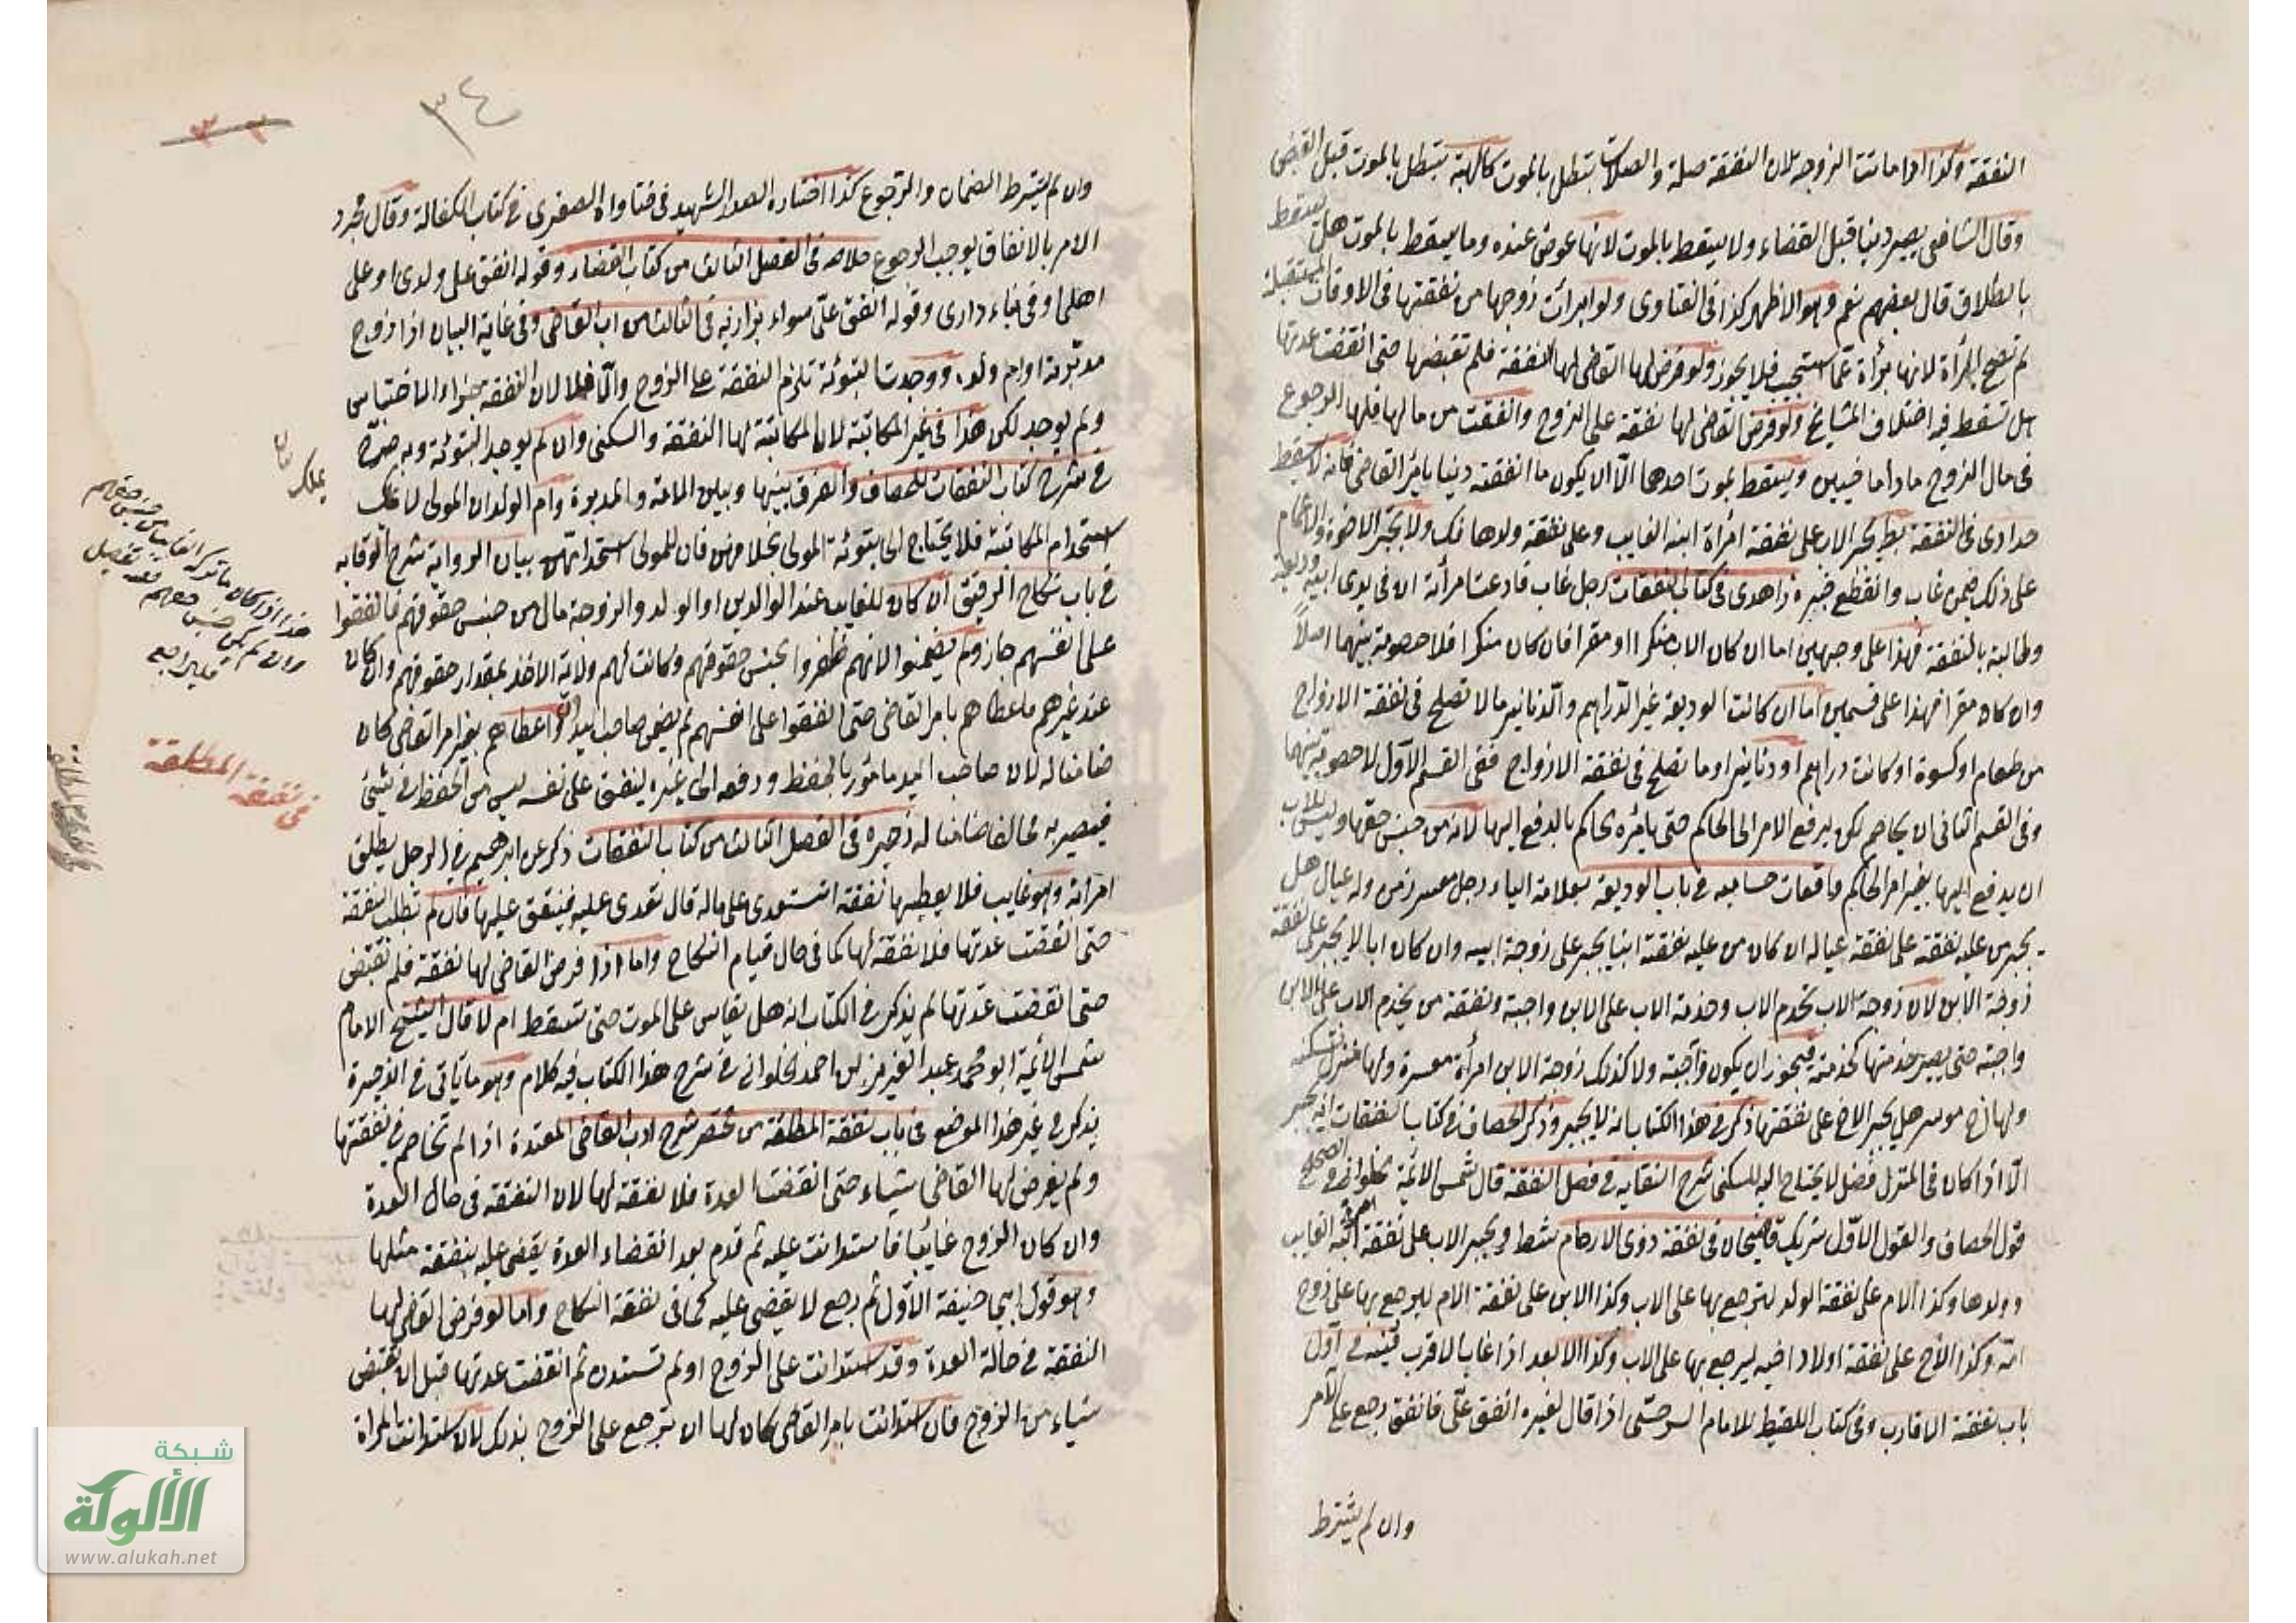 النفقة وكذا اذا ماتت الزوجة لان النفقة صلة والصلات تبطل بالموت كالهبة تبطل بالموت قبل القبض
وقال الشافعي يصير دينا قبل القضاء ولا يسقط بالموت لانها عوض عنده وما يسقط بالموت هل يسقط
بالطلاق قال بعضهم نعم وهو الاظهر كذا في الفتاوى ولو ابرأت زوجها من نفقتها في الاوقات المستقبلة
لم تصح البرأة لانها برأة عما سيجب فلا يجوز ولو فرض لها القاضي لها النفقة فلم تقبضها حتى انقضت عدتها
هل تسقط فيه اختلاف المشايخ ولو فرض القاضي لها نفقة على الزوج وانفقت من مالها فلها الرجوع
في مال الزوج ما داما حيين ويسقط بموت احدهما الا ان يكون ما انفقته دينا بامر القاضي فانه لا يسقط
حدادي في النفقة يجبر الاب على نفقة امرأة ابنه الغايب وعلى نفقة ولدها ولا يجبر الاخوة والاعمام
على ذلك غاب وانقطع خبره زاهدي في كتاب النفقات رجل غاب فادعت امرأته ان في يدي ابيه وديعة
وطالبته بالنفقة فهذا على وجهين اما ان كان الاب منكرا او مقرا فان كان منكرا فلا خصومة بينهما اصلاً
وان كان مقرا فهذا على قسمين اما ان كانت الوديعة غير الدراهم والدنانير مالا تصلح في نفقة الازواج
من طعام او كسوة او كانت دراهم او دنانير او ما تصلح في نفقة الازواج ففي القسم الاول لا خصومة بينهما
وفي القسم الثاني ان يخاصم لكن يرفع الامر الى الحاكم حتى يامره الحاكم بالدفع اليها لانه من جنس حقها وليس للاب
ان يدفع اليها بغير امر الحاكم واقعات حسامية في باب الوديعة بعلامة الياء رجل معسر زمن وله عيال هل
يجبر من عليه نفقته على نفقة عياله ان كان من عليه نفقته ابنا يجبر على زوجة ابيه وان كان ابا لا يجبر على نفقة
زوجة الابن لان زوجة الاب تخدم الاب وخدمة الاب على الابن واجبة ونفقة من يخدم الاب على الابن
واجبة حتى يصير خدمتها كخدمته فيجوز ان يكون واجبة ولا كذلك زوجة الابن امرأة معسرة ولها منزل تسكنه
ولها اخ موسر هل يجبر الاخ على نفقتها ذكر في هذا الكتاب انه لا يجبر وذكر الخصاف في كتاب النفقات انه يجبر
الا اذا كان في المنزل فضل لا يحتاج اليه للسكنى شرح النقاية في فصل النفقة قال شمس الائمة الحلواني والصحيح
قول الخصاف والقول الاول شريك قاضيخان في نفقة ذوي الارحام ويجبر الاب على نفقة امرأة ابنه الغايب
وولدها وكذا الام على نفقة الولد لترجع بها على الاب وكذا الابن على نفقة الام ليرجع بها على زوج
امه وكذا الاخ على نفقة اولاد اخيه ليرجع بها على الاب وكذا الابعد اذا غاب الاقرب قنية في اول
باب نفقة الاقارب وفي كتاب اللقيط للامام السرخسي اذا قال لغيره انفق علي فانفق رجع على الآمر
وان لم يشترط
٣٤
٣٣
وان لم يشترط الضمان والرجوع كذا اختاره الصدر الشهيد في فتاواه الصغرى في كتاب الكفالة وقال مجرد
الامر بالانفاق يوجب الرجوع خلاصه في الفصل الثالث من كتاب القضاء وقوله انفق على ولدي او على
اهلي او في بناء داري وقوله انفق علي سواء بزازيه في الثالث من ادب القاضي وفي غاية البيان اذا زوج
مدبرته او ام ولده ووجدت التبوئة تلزم النفقة على الزوج والا فلا لان النفقة جزاء الاحتباس
ولم يوجد لكن هذا في غير المكاتبة لان المكاتبة لها النفقة والسكنى وان لم يوجد التبوئة وبه صرح
في شرح كتاب النفقات للخصاف والفرق بينها وبين الامة والمدبرة وام الولد ان المولى لا يملك
استخدام المكاتبة فلا يحتاج الى تبوئة المولى بخلافهن فان للمولى استخدامهن بيان الرواية شرح الوقاية
في باب نكاح الرقيق ان كان للغايب عند الوالدين او الولد والزوجة مال من جنس حقوقهم فانفقوا
على انفسهم جاز ولم يضمنوا لانهم ظفروا بجنس حقوقهم وكانت لهم ولاية الاخذ بمقدار حقوقهم وان كان
عند غيرهم فاعطاهم بامر القاضي حتى انفقوا على انفسهم لم يضمن صاحب اليد وان اعطاهم بغير امر القاضي كان
ضامنا له لان صاحب اليد مامور بالحفظ ودفعه الى غيره لينفق على نفسه ليس من الحفظ في شيئ
فيصير به مخالفا ضامنا له ذخيره في الفصل الثالث من كتاب النفقات ذكر عن ابرهيم في الرجل يطلق
امرأته وهو غايب فلا يعطيها نفقة اتستعدي على ماله قال تعدى عليه فينفق عليها فان لم تطلب النفقة
حتى انقضت عدتها فلا نفقة لها كما في حال قيام النكاح واما اذا فرض القاضي لها نفقة فلم تقتبض
حتى انقضت عدتها لم يذكر في الكتاب انه هل يقاس على الموت حتى تسقط ام لا قال الشيخ الامام
شمس الائمة ابو محمد عبد العزيز بن احمد الحلواني في شرح هذا الكتاب فيه كلام وهو ما يأتي في الذخيرة
يذكر في غير هذا الموضع في باب نفقة المطلقة من مختصر شرح ادب القاضي المعتدة اذا لم تخاصم في نفقتها
ولم يفرض لها القاضي شياء حتى انقضت العدة فلا نفقة لها لان النفقة في حال العدة
وان كان الزوج غايبا فاستدانت عليه ثم قدم بعد انقضاء العدة يقضي عليه بنفقة مثلها
وهو قول ابي حنيفة الاول ثم رجع لا يقضي عليه كما في نفقة النكاح واما لو فرض القاضي لها
النفقة في حالة العدة وقد استدانت على الزوج او لم تستدن ثم انقضت عدتها قبل ان تقبض
شياء من الزوج فان استدانت بامر القاضي كان لها ان ترجع على الزوج بذلك لان استدانت المراة
يملك
هذا اذا كان ما تركه الغايب من جنس حقهم
وان لم يكن جنس حقهم ففيه تفصيل
فليراجع
في نفقة المطلقة
شبكة
الألوكة
www.alukah.net